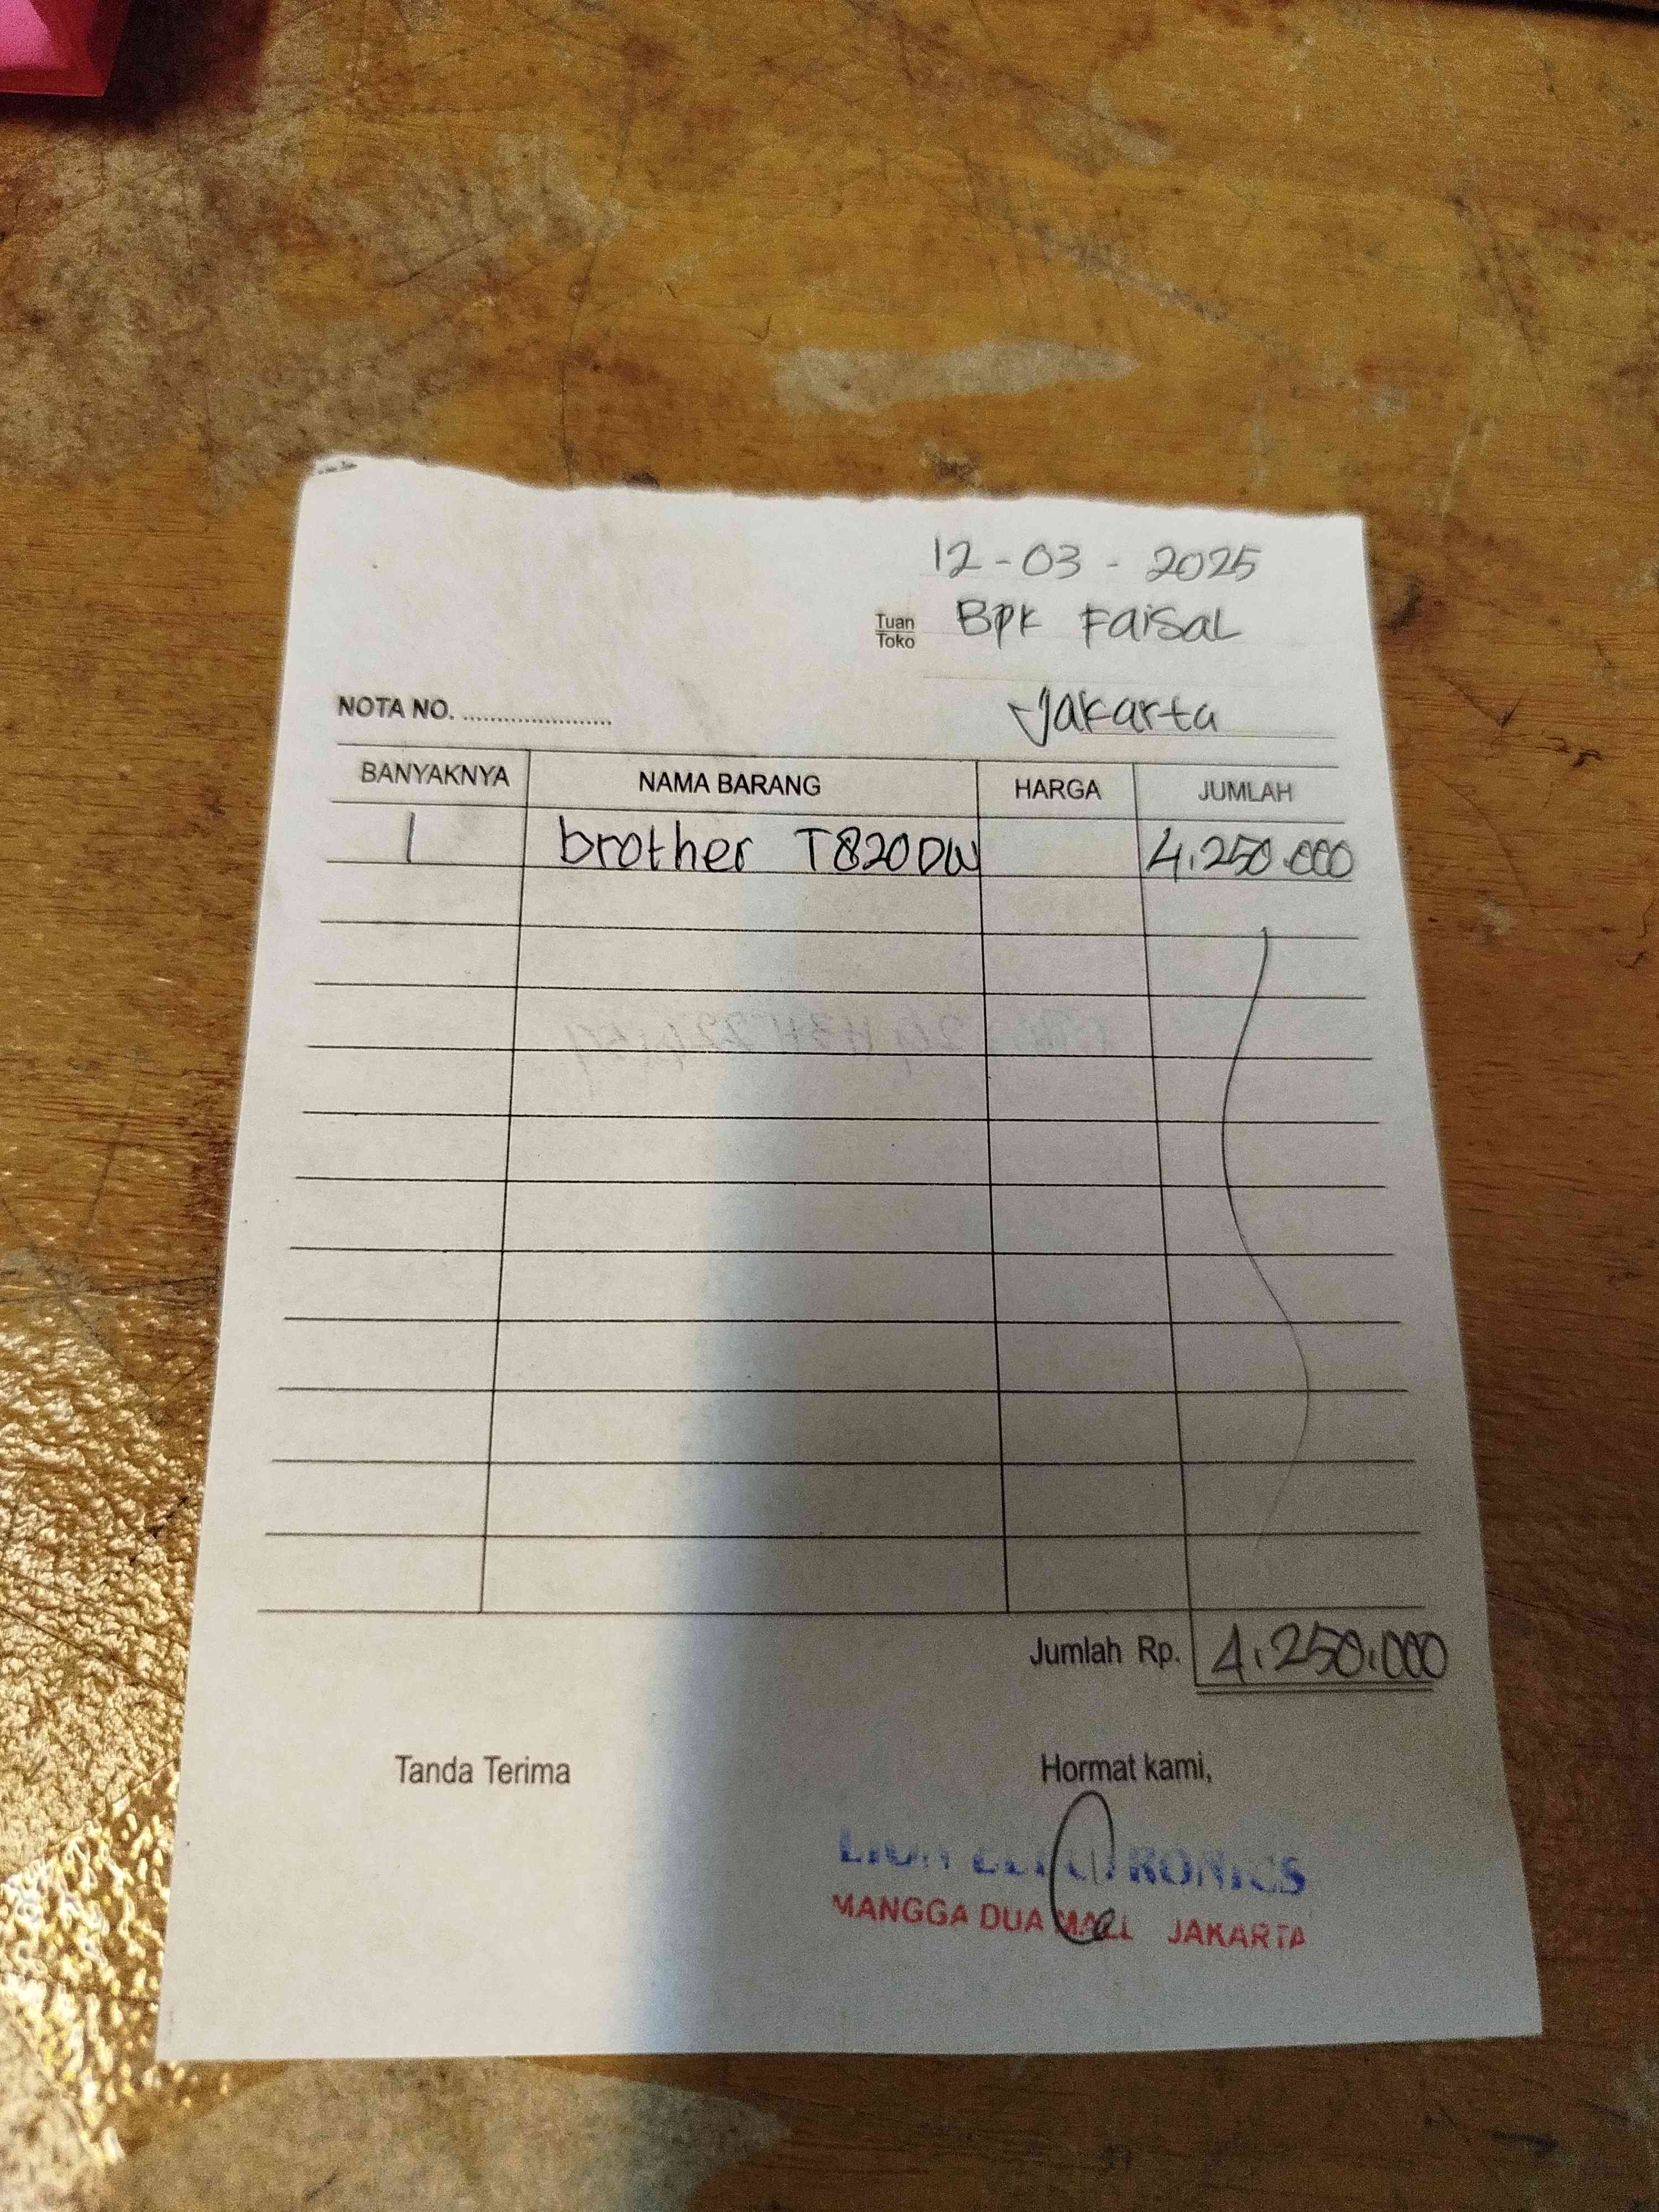 12-03-2025
Tuan
Toko
Bpk Faisal
Jakarta
NOTA NO. ......................
BANYAKNYA NAMA BARANG HARGA JUMLAH
1 brother T820DW 4.250.000
Jumlah Rp. 4.250.000
Tanda Terima Hormat kami,
MANGGA DUA MALL JAKARTA